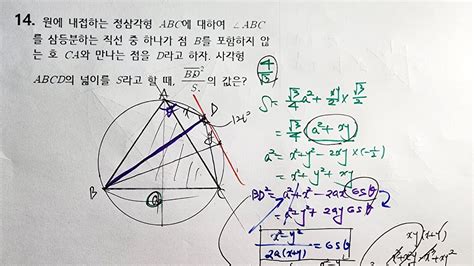 14. 원에 내접하는 정삼각형 ABC에 대하여 ∠ABC
를 삼등분하는 직선 중 하나가 점 B를 포함하지 않
는 호 CA와 만나는 점을 D라고 하자. 사각형
ABCD의 넓이를 S라고 할 때, BD²/S 의 값은?
4/√3
S = √3/4 a² + xy/2 × √3/2
= √3/4 (a² + xy)
a² = x² + y² - 2xy × (-1/2)
= x² + y² + xy
BD² = a² + x² - 2ax cosθ
= a² + y² + 2ay cosθ
x² - y² / 2a(x+y) = cosθ
xy(x+y)
A
x
D
120°
B
C